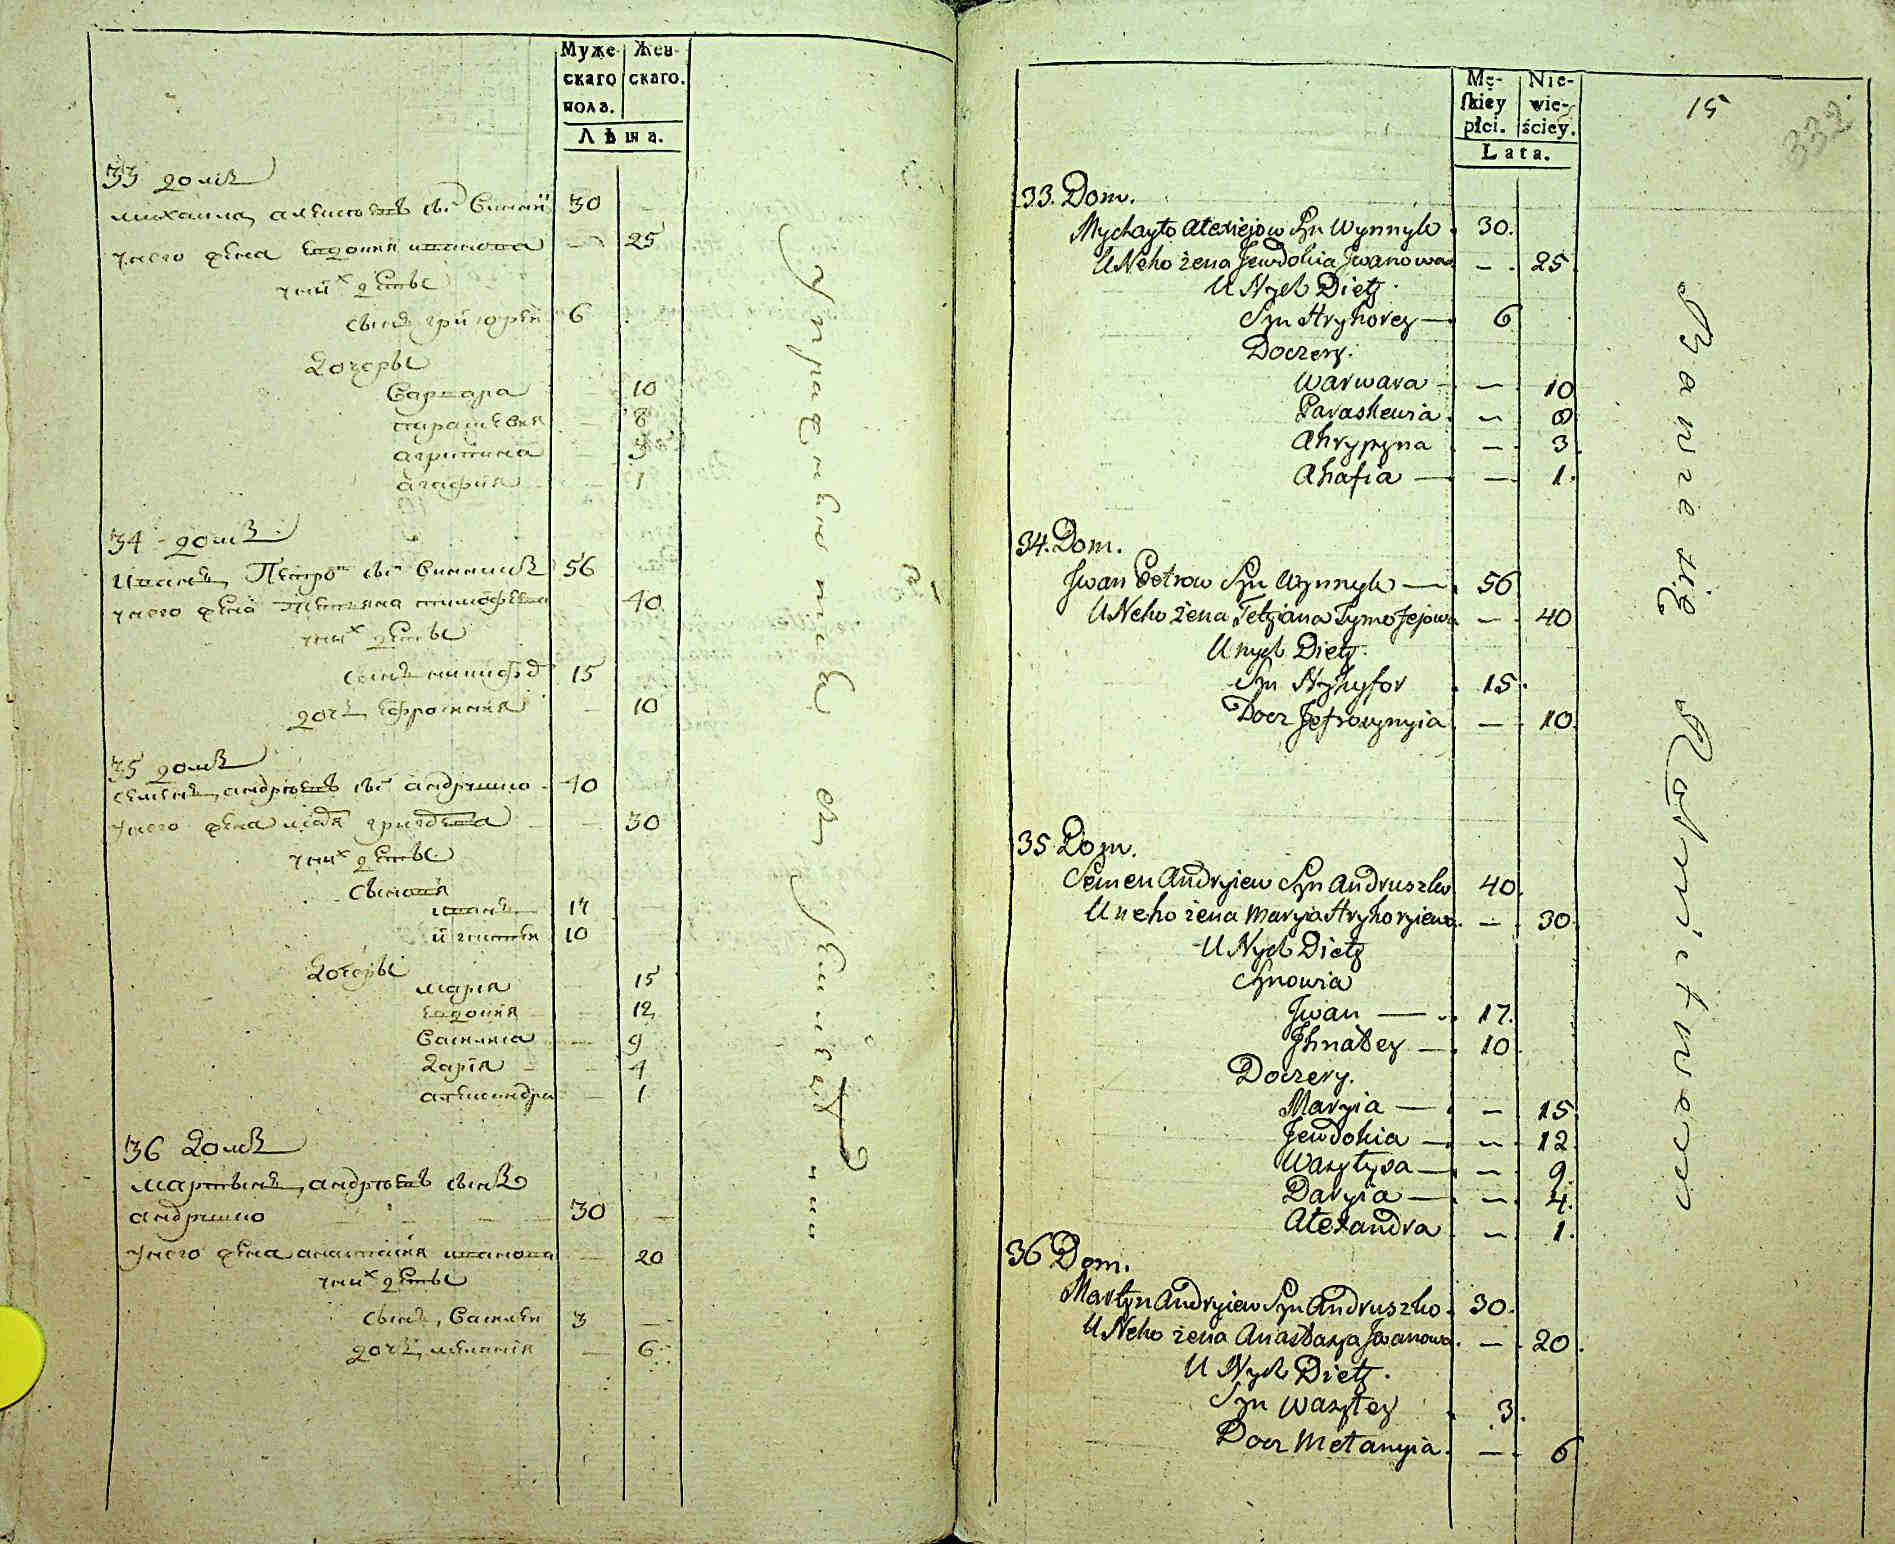 Муже-
скаго
пола.
Жен-
скаго.
Лѣта.
33 домъ
Михайла, алеѯіевъ сынъ Винникъ 30 —
у него жена Евдокия иванова — 25
у них дѣти
сынъ григорей 6
дочеры
Варвара — 10
парасковия — 8
агрипина — 3
агафия — 1
34 домъ
иванъ, Петровъ сынъ Винникъ 56
у него жена Татияна тимофѣева 40
у них дѣти
сынъ никифоръ 15
дочь, ефросиния — 10
35 домъ
семенъ, андрѣевъ сынъ андрушко 40
у него жена мария григорева — 30
у них дѣти
сыновя
иванъ 17 —
игнатей 10
дочеры
мария 15
евдокия — 12
Василиса — 9
дария — 4
александра — 1
36 домъ
мартынъ, андрѣевъ сынъ
андрушко 30 —
у него жена анастасия иванова — 20
у них дѣти
сынъ, Василей 3 —
дочь, мелания — 6
Mę-
skiey
płci.
Nie-
wie-
ściey.
Lata.
15
332
33. Dom.
Mychayło Alexiejow Syn Wynnyk 30.
U Neho żena Jewdokia Jwanowa — 25
U Nych Diety
Syn Hryhorey — 6
Doczery.
Warwara — 10
Paraskewia — 8
Ahrypyna — 3
Ahafia — 1.
34. Dom.
Jwan Petrow Syn Wynnyk — 56
U Neho żena Tetyana Tymofejowa — 40
U nych Diety
Syn Nykyfor 15.
Docz Jefrosynyia — 10.
35 Dom.
Semen Andryiew Syn Andruszko 40.
U neho żena Maryia Hryhoryiewa. — 30.
U Nych Diety
Synowia
Jwan — 17.
Jhnatey — 10
Doczery.
Maryia — 15
Jewdokia — 12
Wasylysa — 9.
Daryia — 4.
Alexandra — 1.
36 Dom.
Martyn Andryiew Syn Andruszko. 30.
U Neho żena Anastasya Jwanowa. — 20.
U Nych Diety.
Syn Wasyley 3.
Docz Melanyia. — 6